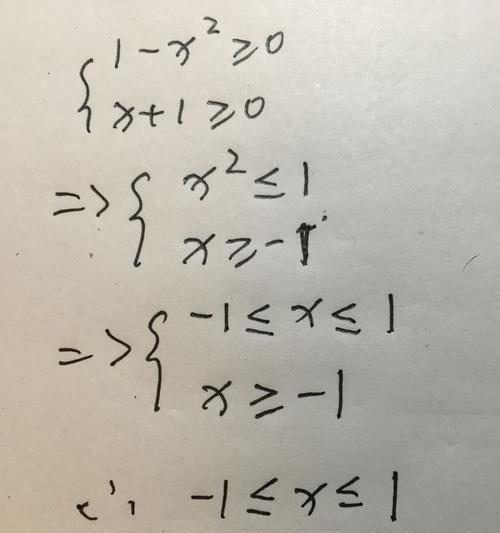 { 1 - x² ≥ 0
x + 1 ≥ 0
=> { x² ≤ 1
x ≥ -1
=> { -1 ≤ x ≤ 1
x ≥ -1
∴ -1 ≤ x ≤ 1